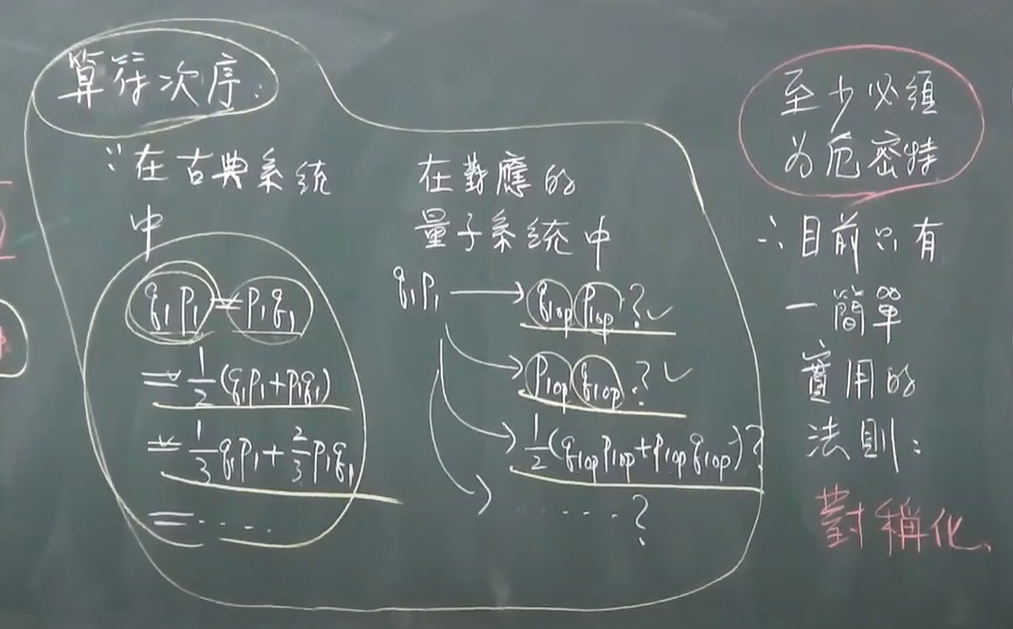 算符次序:
∵在古典系統
中
q₁p₁=p₁q₁
=1/2(q₁p₁+p₁q₁)
=1/3q₁p₁+2/3p₁q₁
=‥‥‥
在對應的
量子系統中
q₁p₁→q₁op p₁op?✓
→p₁op q₁op?✓
→1/2(q₁op p₁op+p₁op q₁op)?
→‥‥‥?
至少必須
为厄密特
∴目前只有
一簡單
實用的
法則:
對稱化、